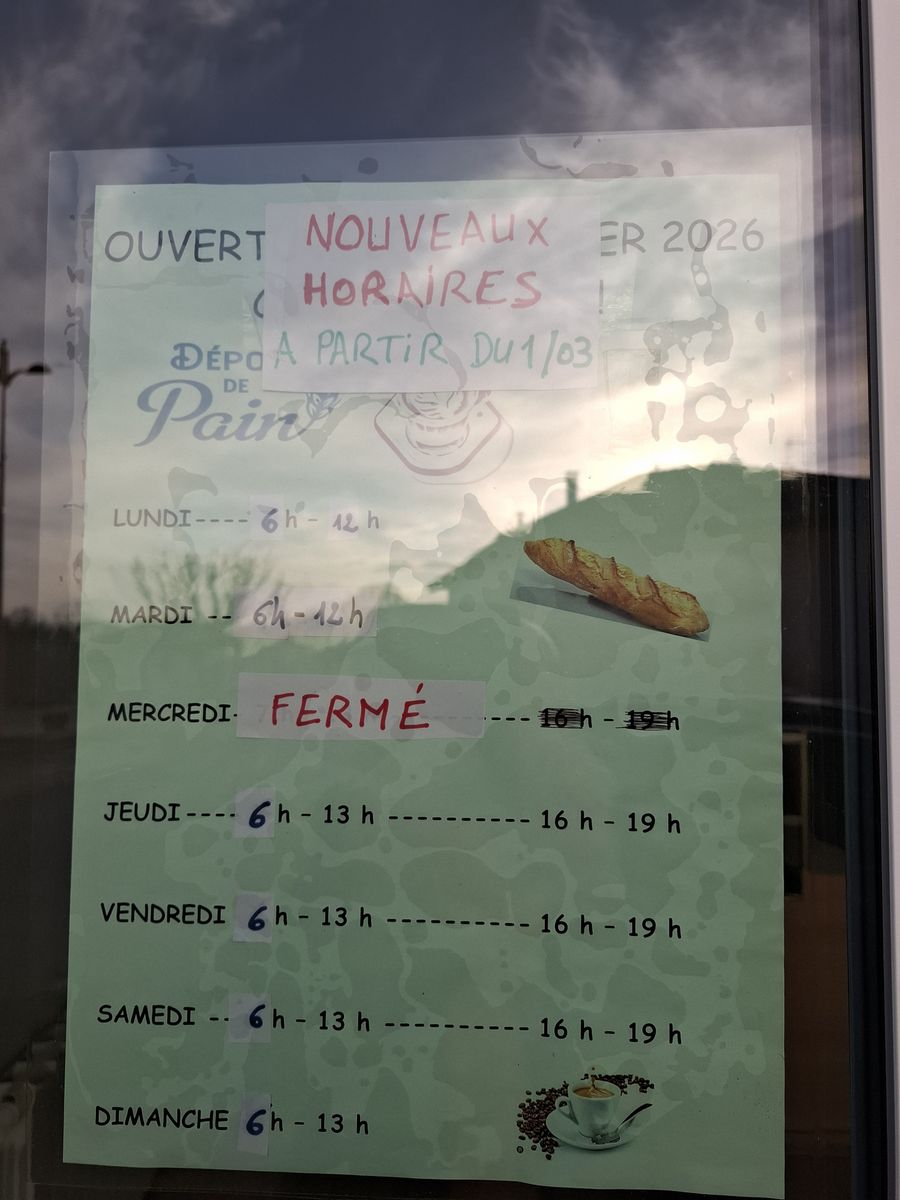 OUVERT NOUVEAUX ER 2026
HORAIRES !
DÉPO A PARTIR DU 1/03
DE
Pain
LUNDI---- 6 h - 12 h
MARDI -- 6h - 12h
MERCREDI- FERMÉ ---- 16 h - 19 h
JEUDI---- 6 h - 13 h ---------- 16 h - 19 h
VENDREDI 6 h - 13 h ---------- 16 h - 19 h
SAMEDI -- 6 h - 13 h ---------- 16 h - 19 h
DIMANCHE 6 h - 13 h